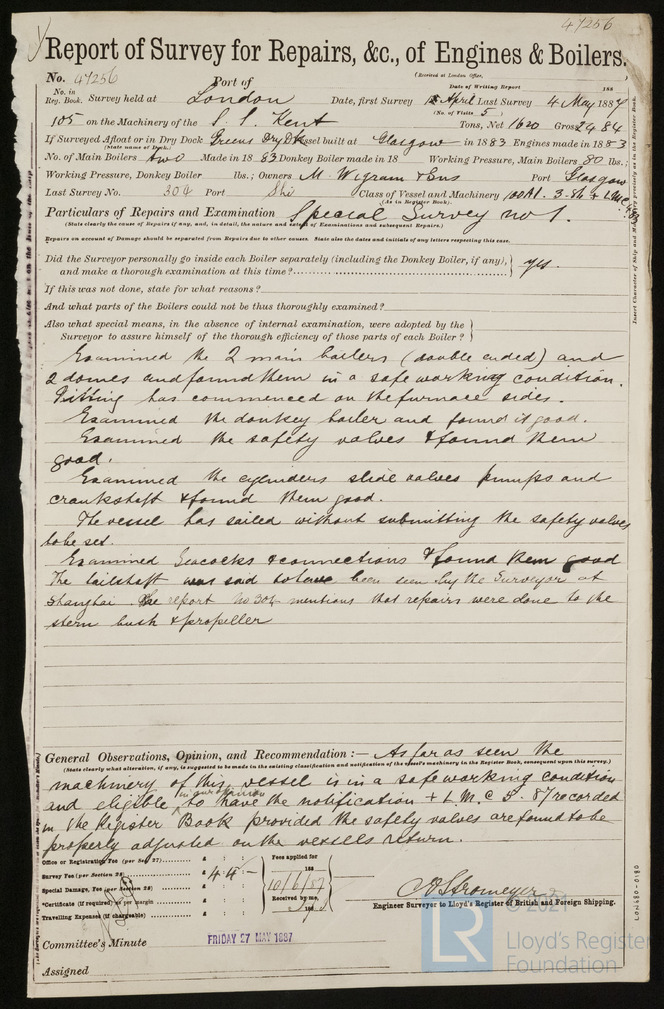 47256
Report of Survey for Repairs, &c., of Engines & Boilers.
No. 47256 Port of (Received at London Office, )
No. in Reg. Book. Survey held at London Date, first Survey April Last Survey 4 May 1887
Date of Writing Report 188
(No. of Visits 5)
105 on the Machinery of the S. S. Kent Tons, Net 1620 Gross 2484
If Surveyed Afloat or in Dry Dock Greens Dry Dk Vessel built at Glasgow in 1883 Engines made in 1883
(State name of Dock.)
No. of Main Boilers two Made in 1883 Donkey Boiler made in 18 Working Pressure, Main Boilers 80 lbs.;
Working Pressure, Donkey Boiler lbs.; Owners M. Wigram & Sns Port Glasgow
Last Survey No. 304 Port Shi Class of Vessel and Machinery 100A1. + L.M.C.
(As in Register Book).
Particulars of Repairs and Examination Special Survey no 1.
(State clearly the cause of Repairs if any, and, in detail, the nature and extent of Examinations and subsequent Repairs.)
Repairs on account of Damage should be separated from Repairs due to other causes. State also the dates and initials of any letters respecting this case.
Did the Surveyor personally go inside each Boiler separately (including the Donkey Boiler, if any), and make a thorough examination at this time? yes.
If this was not done, state for what reasons?
And what parts of the Boilers could not be thus thoroughly examined?
Also what special means, in the absence of internal examination, were adopted by the
Surveyor to assure himself of the thorough efficiency of those parts of each Boiler?
Examined the 2 main boilers (double ended) and
2 domes and found them in a safe working condition.
Pitting has commenced on the furnace sides.
Examined the donkey boiler and found it good.
Examined the safety valves & found them
good.
Examined the cylinders slide valves pumps and
crankshaft & found them good.
The vessel has sailed without submitting the safety valves
to be set.
Examined Seacocks & connections & found them good
The tailshaft was said to have been seen by the Surveyor at
Shanghai The report no 304 mentions that repairs were done to the
stern bush & propeller
General Observations, Opinion, and Recommendation:— As far as seen the
(State clearly what alteration, if any, is suggested to be made in the existing classification and notification of the vessel's machinery in the Register Book, consequent upon this survey.)
machinery of this vessel is in a safe working condition
and eligible in our opinion to have the notification + L.M.C 5.87 recorded
in the Register Book provided the safety valves are found to be
properly adjusted on the vessels return.
Office or Registration Fee (per Sec. 27) £ : :
Survey Fee (per Section 28) £ 4 : 4 : -
Special Damage, Fee (per Section 28) £ : :
*Certificate (if required) as per margin £ : :
Travelling Expenses (if chargeable) £ : :
Fees applied for
188
10/6/87
Received by me,
188
Engineer Surveyor to Lloyd's Register of British and Foreign Shipping.
Committee's Minute FRIDAY 27 MAY 1887
Assigned
Insert Character of Ship and Machinery precisely as in the Register Book.
© 2021
LR
Lloyd's Register
Foundation